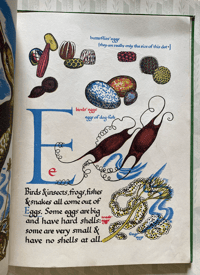 butterflies' eggs
(they are really only the size of this dot •)
birds' eggs
eggs of dog fish
E
e
Birds & insects, frogs, fishes
& snakes all come out of
Eggs. Some eggs are big
and have hard shells
some are very small &
have no shells at all.